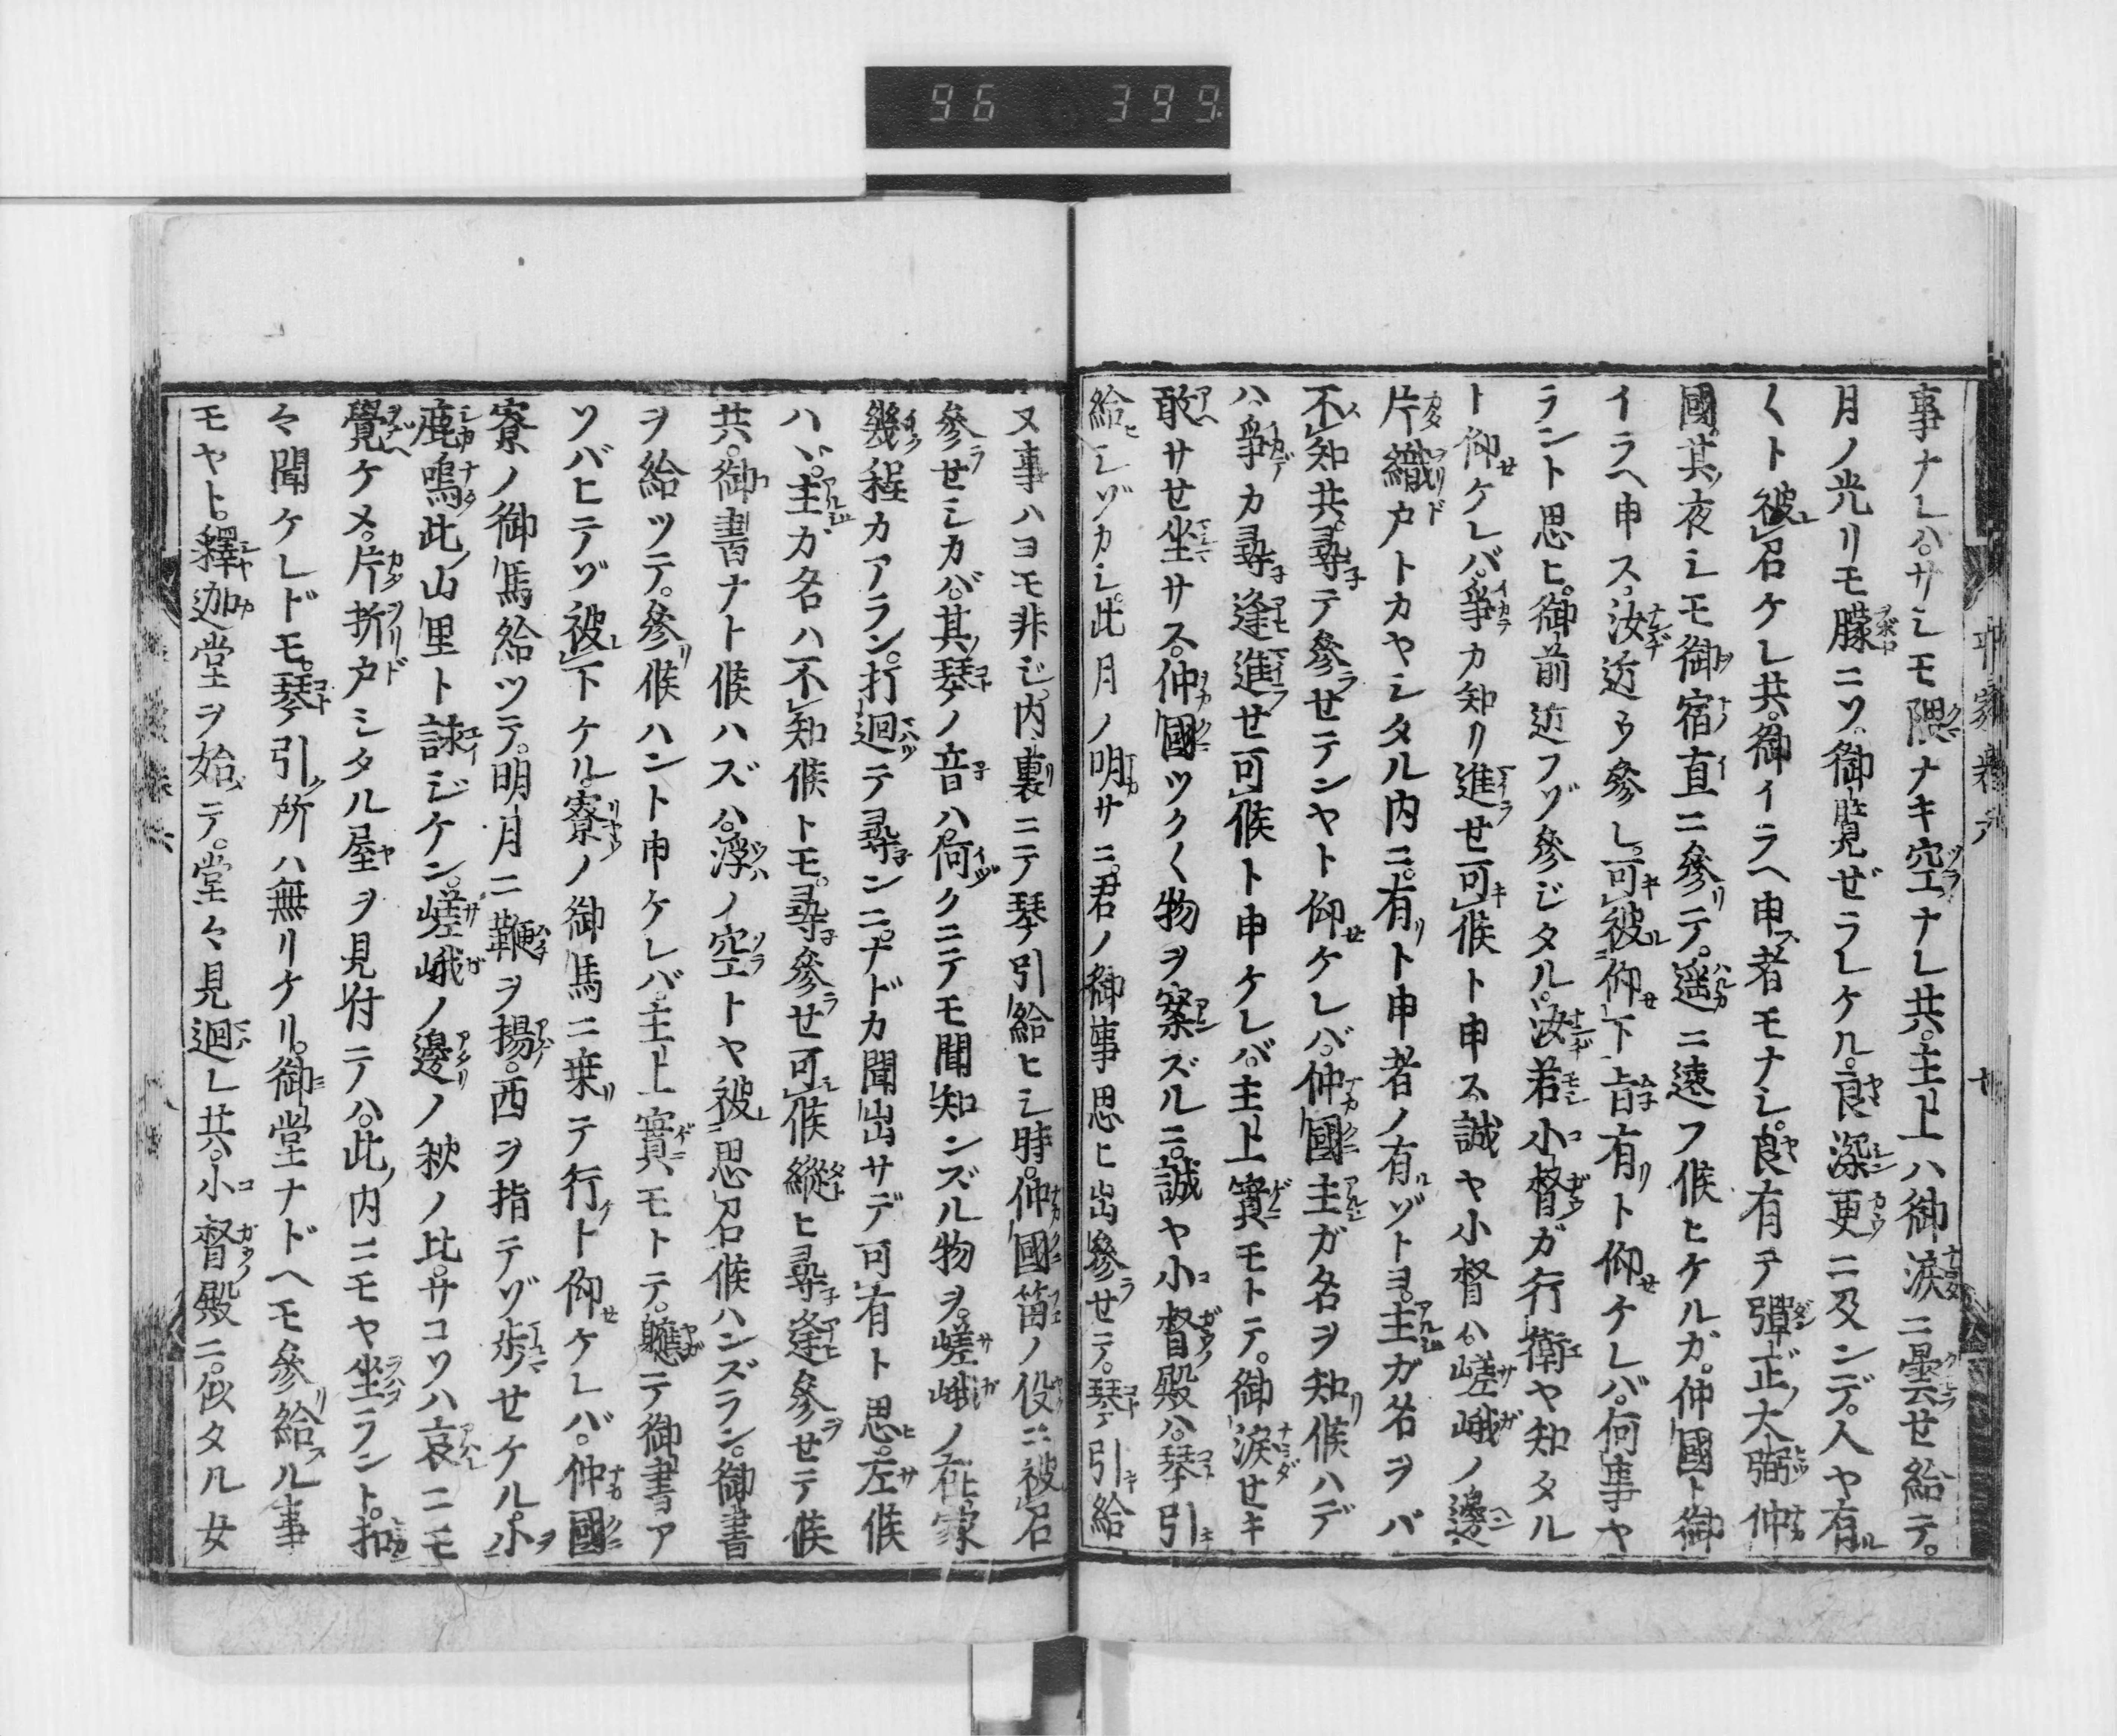 96 399.
事ナレハ。サシモ隈ナキ空ナレ共。主上ハ御涙ニ曇セ給テ。
月ノ光リモ朦ニソ。御覽ゼラレケル。良深更ニ及ンデ。人ヤ有
〱ト被召ケレ共。御イラヘ申ス者モナシ。良有テ彈正大弼仲
國。其夜シモ御宿直ニ參テ。遥ニ遠フ候ヒケルガ。仲國ト御
イラヘ申ス。汝近ウ參レ。可被仰下旨有リト仰セケレバ。何事ヤ
ラント思ヒ。御前近フゾ參ジタル。汝若小督ガ行衛ヤ知タル
ト仰セケレバ。爭カ知リ進セ可候ト申ス。誠ヤ小督ハ。嵯峨ノ邊
片織戸トカヤシタル内ニ。有リト申者ノ有ルゾトヨ。主ガ名ヲバ
不知共。尋テ參ラセテンヤト仰セケレバ。仲國主ガ名ヲ知リ候ハデ
ハ。爭カ尋逢進セ可候ト申ケレバ。主上實モトテ。御涙セキ
敢サセ坐サス。仲國ツク〱物ヲ案ズルニ。誠ヤ小督殿ハ。琴引
給ヒシゾカシ。此月ノ明サニ。君ノ御事思ヒ出參ラセテ。琴引給
ヌ事ハヨモ非ジ。内裏ニテ琴引給ヒシ時。仲國笛ノ役ニ被召
參ラセシカバ。其琴ノ音ハ。何クニテモ聞知ンズル物ヲ。嵯峨ノ在家
幾程カアラン。打迴テ尋ンニ。ナドカ聞出サデ可有ト思ヒ。左候
ハヾ。主ガ名ハ不知候トモ。尋參ラセ可候。縱ヒ尋逢參ラセテ候
共。御書ナト候ハズハ。浮ノ空トヤ被思召候ハンズラン。御書
ヲ給ツテ。參リ候ハント申ケレバ。主上實モトテ。軈テ御書ア
ソバヒテゾ被下ケル。寮ノ御馬ニ乗テ行ケト仰セケレバ。仲國
寮ノ御馬給ツテ。明月ニ鞭ヲ揚。西ヲ指テゾ歩セケル。小
鹿鳴此山里ト詠ジケン。嵯峨ノ邊ノ秋ノ比。サコソハ哀ニモ
覺ケメ。片折戸シタル屋ヲ見付テハ。此内ニモヤ坐ラント。扣
々聞ケレドモ。琴引所ハ無リケリ。御堂ナドヘモ參リ給ヘル事
モヤト。釋迦堂ヲ始テ。堂々見迴レ共。小督殿ニ。似タル女